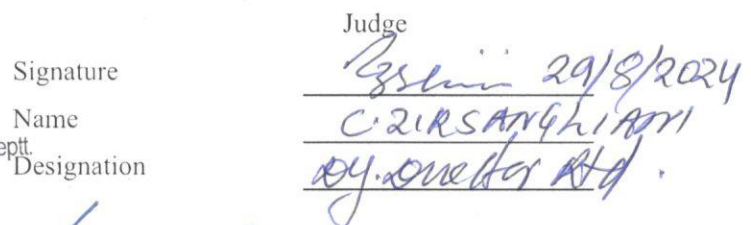 Judge
Signature 29/8/2024
Name C. ZIRSANGLIANI
eptt.
Designation Dy. Director Rtd.